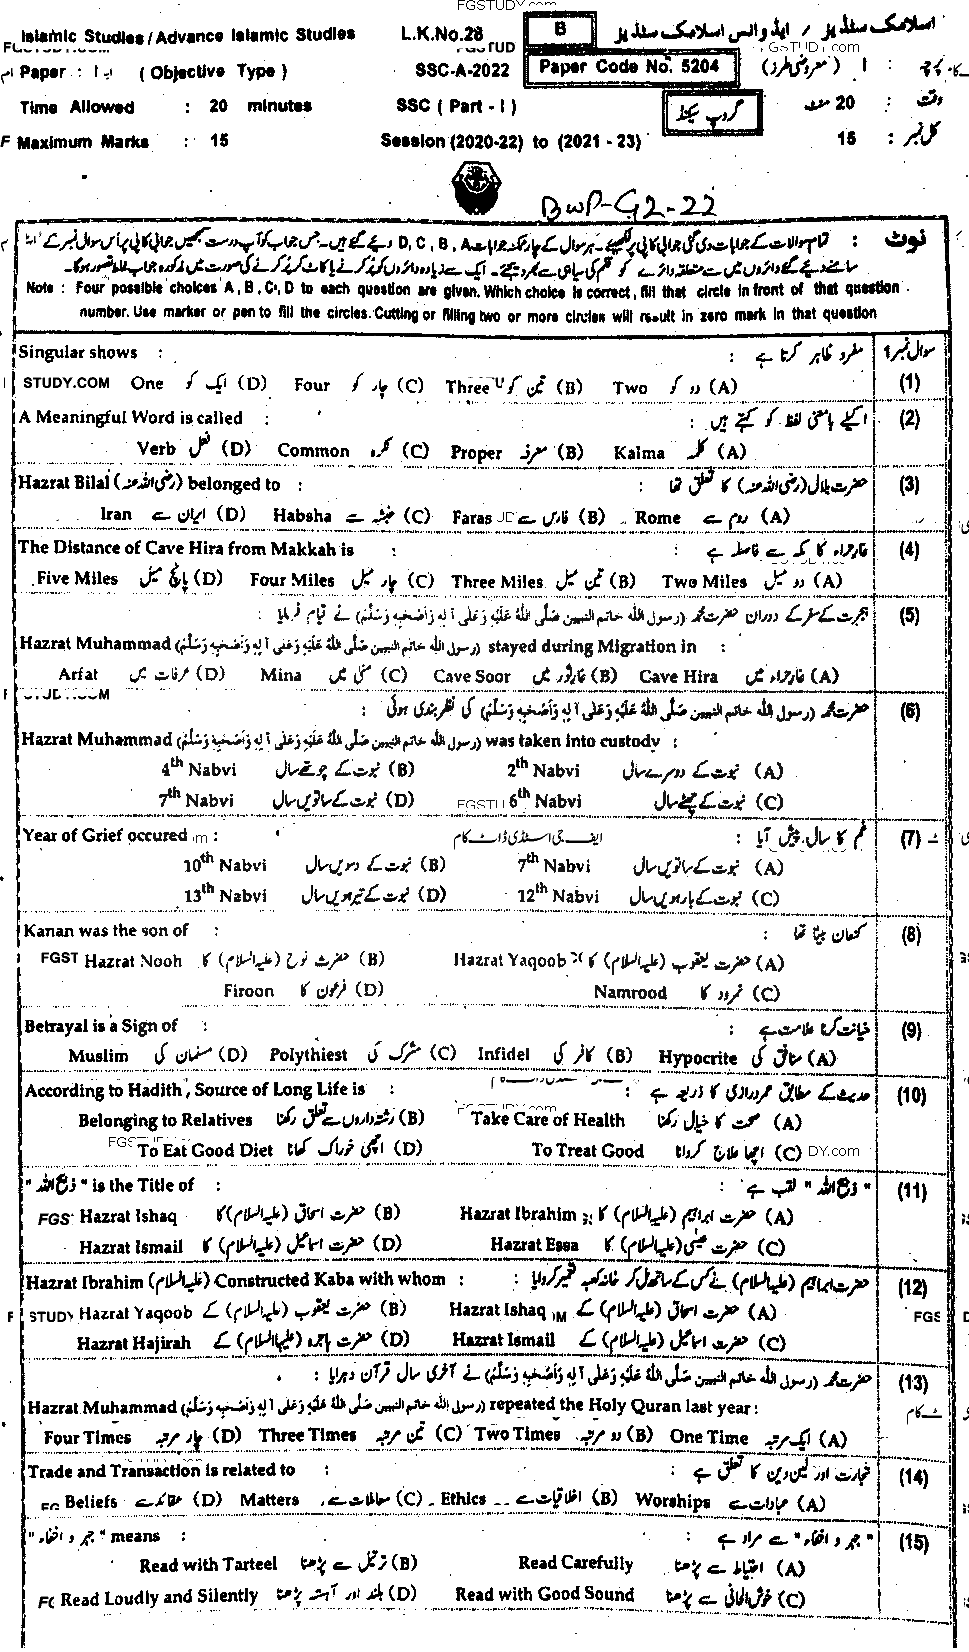 FGSTUDY.com
Islamic Studies/Advance Islamic Studies L.K.No.28 B اسلامک سٹڈیز / ایڈوانس اسلامک سٹڈیز
Paper : I ( Objective Type ) SSC-A-2022 Paper Code No. 5204 پرچہ : I (معروضی طرز)
Time Allowed : 20 minutes SSC ( Part - I ) گروپ سیکنڈ 20 منٹ : وقت
Maximum Marks : 15 Session (2020-22) to (2021 - 23) 15 : کل نمبر
BWP-G2-22
نوٹ : تمام سوالات کے جوابات دی گئی جوابی کاپی پر لکھیے۔ ہر سوال کے چار ممکنہ جوابات D, C, B, A دیے گئے ہیں۔ جس جواب کو آپ درست سمجھیں جوابی کاپی پر اُس سوال نمبر کے
سامنے دیے گئے دائروں میں سے متعلقہ دائرے کو قلم کی سیاہی سے بھر دیجیے۔ ایک سے زیادہ دائروں کو پُر کرنے یا کاٹ کر پُر کرنے کی صورت میں مذکورہ جواب غلط تصور ہوگا۔
Note : Four possible choices A, B, C, D to each question are given. Which choice is correct, fill that circle in front of that question
number. Use marker or pen to fill the circles. Cutting or filling two or more circles will result in zero mark in that question
سوال نمبر 1
Singular shows : مفرد ظاہر کرتا ہے : (1)
STUDY.COM One ایک کو (D) Four چار کو (C) Three تین کو (B) Two دو کو (A)
A Meaningful Word is called : اکیلے بامعنی لفظ کو کہتے ہیں : (2)
Verb فعل (D) Common نکرہ (C) Proper معرفہ (B) Kalma کلمہ (A)
Hazrat Bilal (رضی اللہ عنہ) belonged to : حضرت بلال (رضی اللہ عنہ) کا تعلق تھا : (3)
Iran ایران سے (D) Habsha حبشہ سے (C) Faras فارس سے (B) Rome روم سے (A)
The Distance of Cave Hira from Makkah is : غارِ حراء کا مکہ سے فاصلہ ہے : (4)
Five Miles پانچ میل (D) Four Miles چار میل (C) Three Miles تین میل (B) Two Miles دو میل (A)
ہجرت کے سفر کے دوران حضرت محمد (رسول اللہ خاتم النبیین صَلَّی اللہُ عَلَیْہِ وَعَلٰی آلِہٖ وَاَصْحٰبِہٖ وَسَلَّمَ) نے قیام فرمایا : (5)
Hazrat Muhammad (رسول اللہ خاتم النبیین صَلَّی اللہُ عَلَیْہِ وَعَلٰی آلِہٖ وَاَصْحٰبِہٖ وَسَلَّمَ) stayed during Migration in :
Arfat عرفات میں (D) Mina منیٰ میں (C) Cave Soor غارِ ثور میں (B) Cave Hira غارِ حراء میں (A)
حضرت محمد (رسول اللہ خاتم النبیین صَلَّی اللہُ عَلَیْہِ وَعَلٰی آلِہٖ وَاَصْحٰبِہٖ وَسَلَّمَ) کی نظر بندی ہوئی : (6)
Hazrat Muhammad (رسول اللہ خاتم النبیین صَلَّی اللہُ عَلَیْہِ وَعَلٰی آلِہٖ وَاَصْحٰبِہٖ وَسَلَّمَ) was taken into custody :
4th Nabvi نبوت کے چوتھے سال (B) 2th Nabvi نبوت کے دوسرے سال (A)
7th Nabvi نبوت کے ساتویں سال (D) 6th Nabvi نبوت کے چھٹے سال (C)
Year of Grief occured : ایف جی اسٹڈی ڈاٹ کام غم کا سال پیش آیا : (7)
10th Nabvi نبوت کے دسویں سال (B) 7th Nabvi نبوت کے ساتویں سال (A)
13th Nabvi نبوت کے تیرہویں سال (D) 12th Nabvi نبوت کے بارہویں سال (C)
Kanan was the son of : کنعان بیٹا تھا : (8)
FGST Hazrat Nooh حضرت نوح (علیہ السلام) کا (B) Hazrat Yaqoob حضرت یعقوب (علیہ السلام) کا (A)
Firoon فرعون کا (D) Namrood نمرود کا (C)
Betrayal is a Sign of : خیانت کرنا علامت ہے : (9)
Muslim مسلمان کی (D) Polythiest مشرک کی (C) Infidel کافر کی (B) Hypocrite منافق کی (A)
According to Hadith, Source of Long Life is : حدیث کے مطابق عمر درازی کا ذریعہ ہے : (10)
Belonging to Relatives رشتہ داروں سے تعلق رکھنا (B) FGSTUDY.com Take Care of Health صحت کا خیال رکھنا (A)
To Eat Good Diet اچھی خوراک کھانا (D) To Treat Good اچھا علاج کروانا (C) DY.com
"ذبیح اللہ" is the Title of : "ذبیح اللہ" لقب ہے : (11)
FGS Hazrat Ishaq حضرت اسحاق (علیہ السلام) کا (B) Hazrat Ibrahim حضرت ابراہیم (علیہ السلام) کا (A)
Hazrat Ismail حضرت اسماعیل (علیہ السلام) کا (D) Hazrat Essa حضرت عیسیٰ (علیہ السلام) کا (C)
Hazrat Ibrahim (علیہ السلام) Constructed Kaba with whom : حضرت ابراہیم (علیہ السلام) نے کس کے ساتھ مل کر خانہ کعبہ تعمیر کروایا : (12)
STUDY Hazrat Yaqoob حضرت یعقوب (علیہ السلام) کے (B) Hazrat Ishaq حضرت اسحاق (علیہ السلام) کے (A) FGS
Hazrat Hajirah حضرت ہاجرہ (علیہا السلام) کے (D) Hazrat Ismail حضرت اسماعیل (علیہ السلام) کے (C)
حضرت محمد (رسول اللہ خاتم النبیین صَلَّی اللہُ عَلَیْہِ وَعَلٰی آلِہٖ وَاَصْحٰبِہٖ وَسَلَّمَ) نے آخری سال قرآن دہرایا : (13)
Hazrat Muhammad (رسول اللہ خاتم النبیین صَلَّی اللہُ عَلَیْہِ وَعَلٰی آلِہٖ وَاَصْحٰبِہٖ وَسَلَّمَ) repeated the Holy Quran last year :
Four Times چار مرتبہ (D) Three Times تین مرتبہ (C) Two Times دو مرتبہ (B) One Time ایک مرتبہ (A)
Trade and Transaction is related to : تجارت اور لین دین کا تعلق ہے : (14)
Beliefs عقائد سے (D) Matters معاملات سے (C) Ethics اخلاقیات سے (B) Worships عبادات سے (A)
"جہر و اخفاء" means : "جہر و اخفاء" سے مراد ہے : (15)
Read with Tarteel ترتیل سے پڑھنا (B) Read Carefully احتیاط سے پڑھنا (A)
Read Loudly and Silently بلند اور آہستہ پڑھنا (D) Read with Good Sound خوش الحانی سے پڑھنا (C)